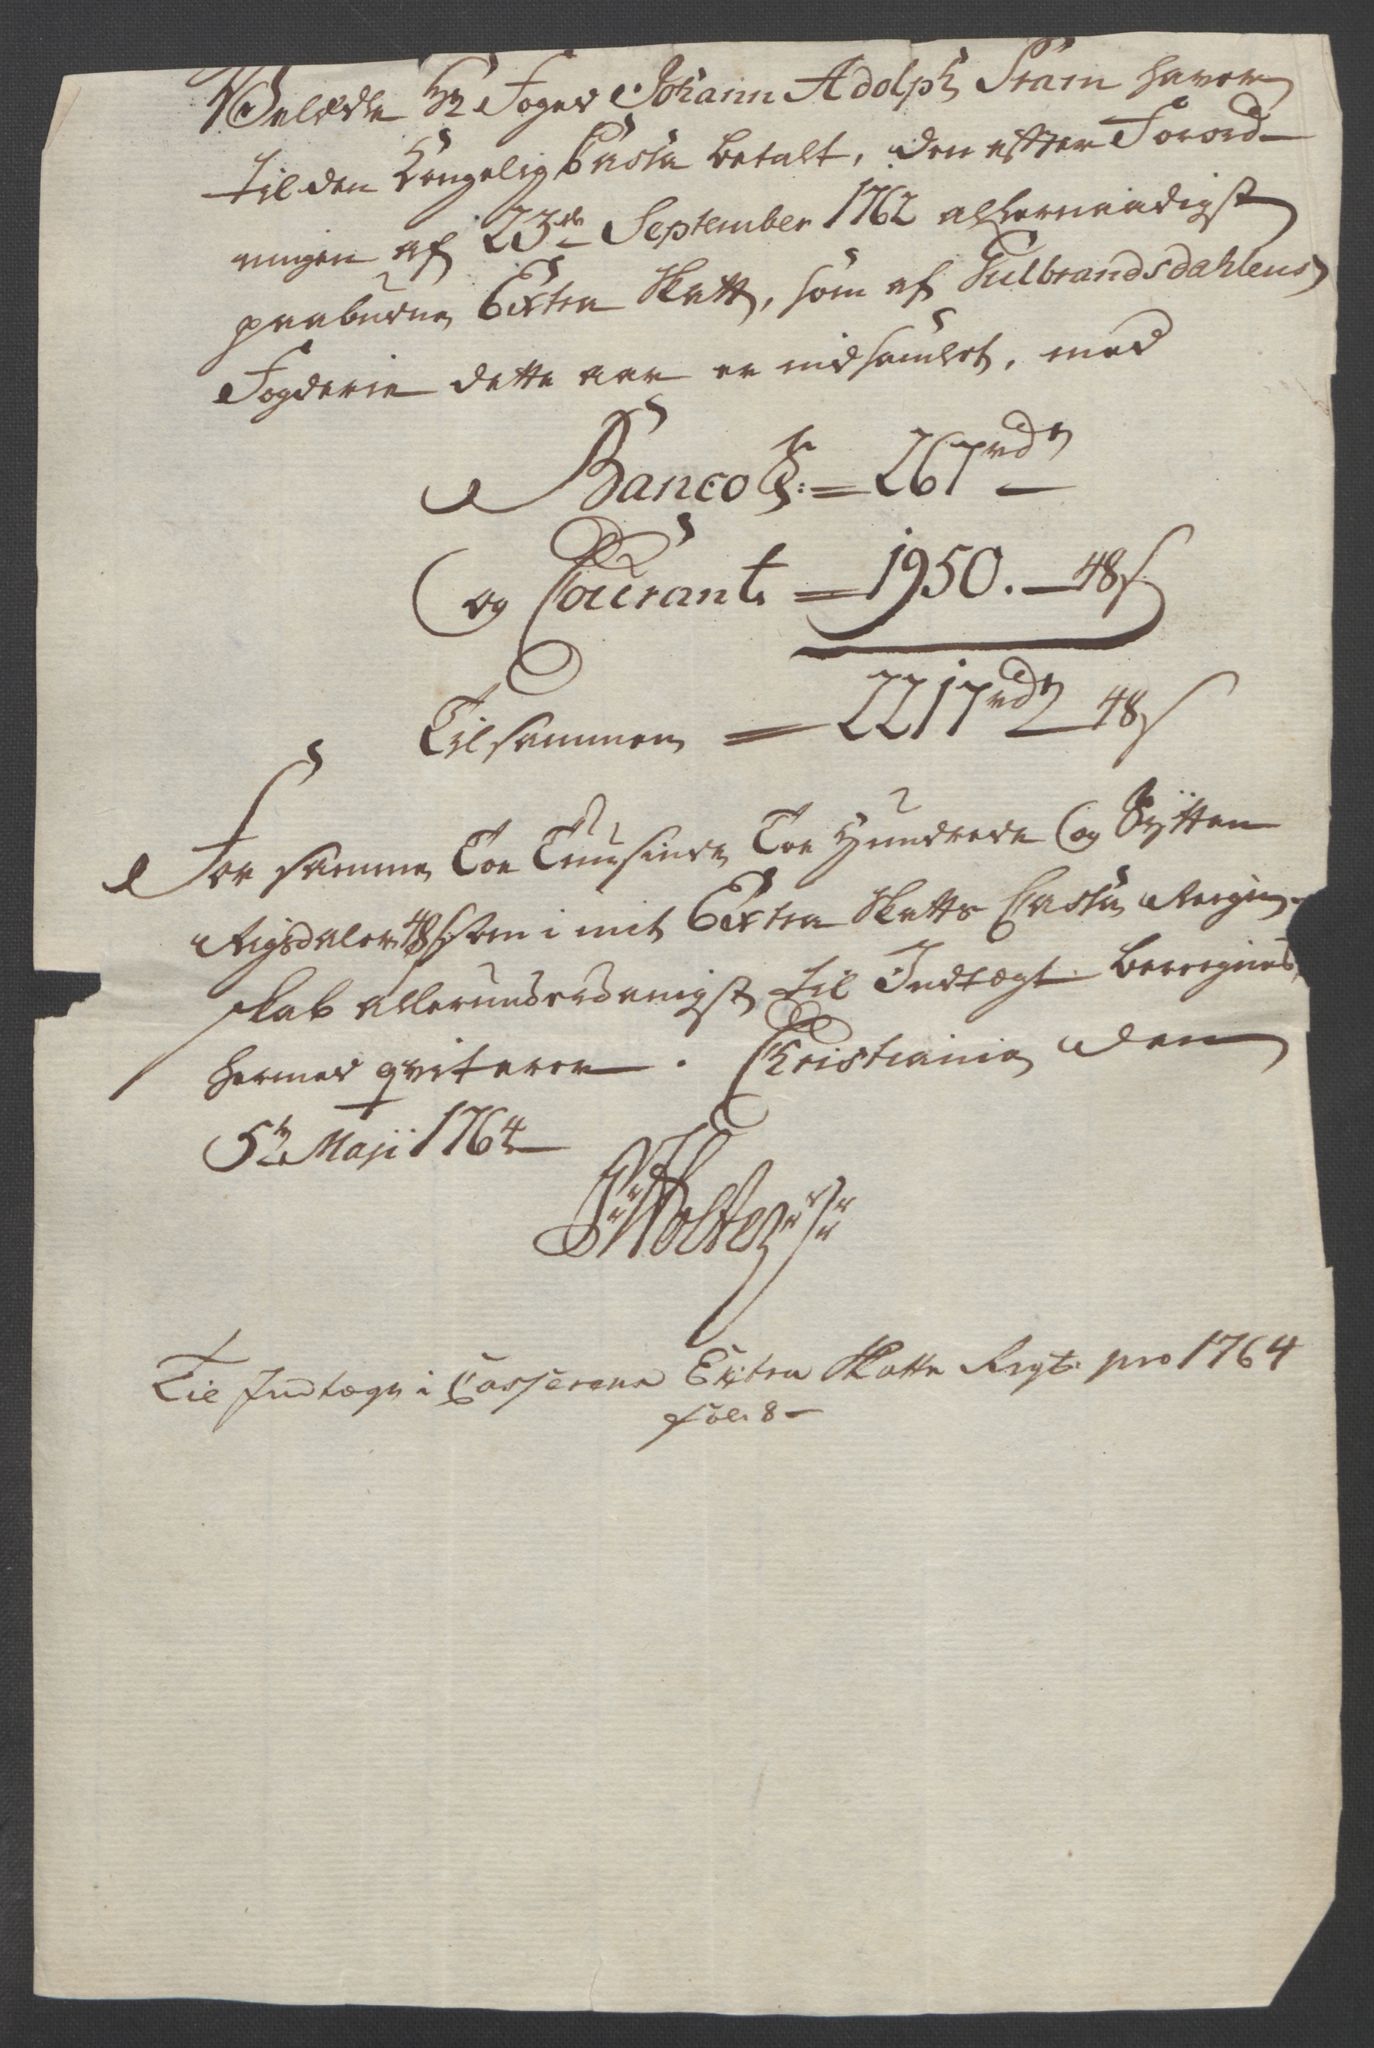 Velædle Hr Foged Johann Adolph Stram haver
til den Kongelig Cassa betalt, den efter Forord-
ningen af 23de September 1762 allernaadigst
paabudne Extra Skatt, som af Gulbrandsdahlens
Fogderie dette aar er indsamlet, med
Banco = 267 rdr
og Courant = 1950. 48 s
Tilsammen = 2217 rdr 48 s
For samme Toe Tuusinde Toe Hundrede og Sytten
Rigsdaler 48 s som i mit Extra Skatts Cassa Regn-
skab allerunderdanigst til Indtægt beregnes,
hermed qviterer. Christiania den
5te Maji 1764
Holter
Til Indtægt i Casserens Extra Skatte Regt: pro 1764
fol. 8